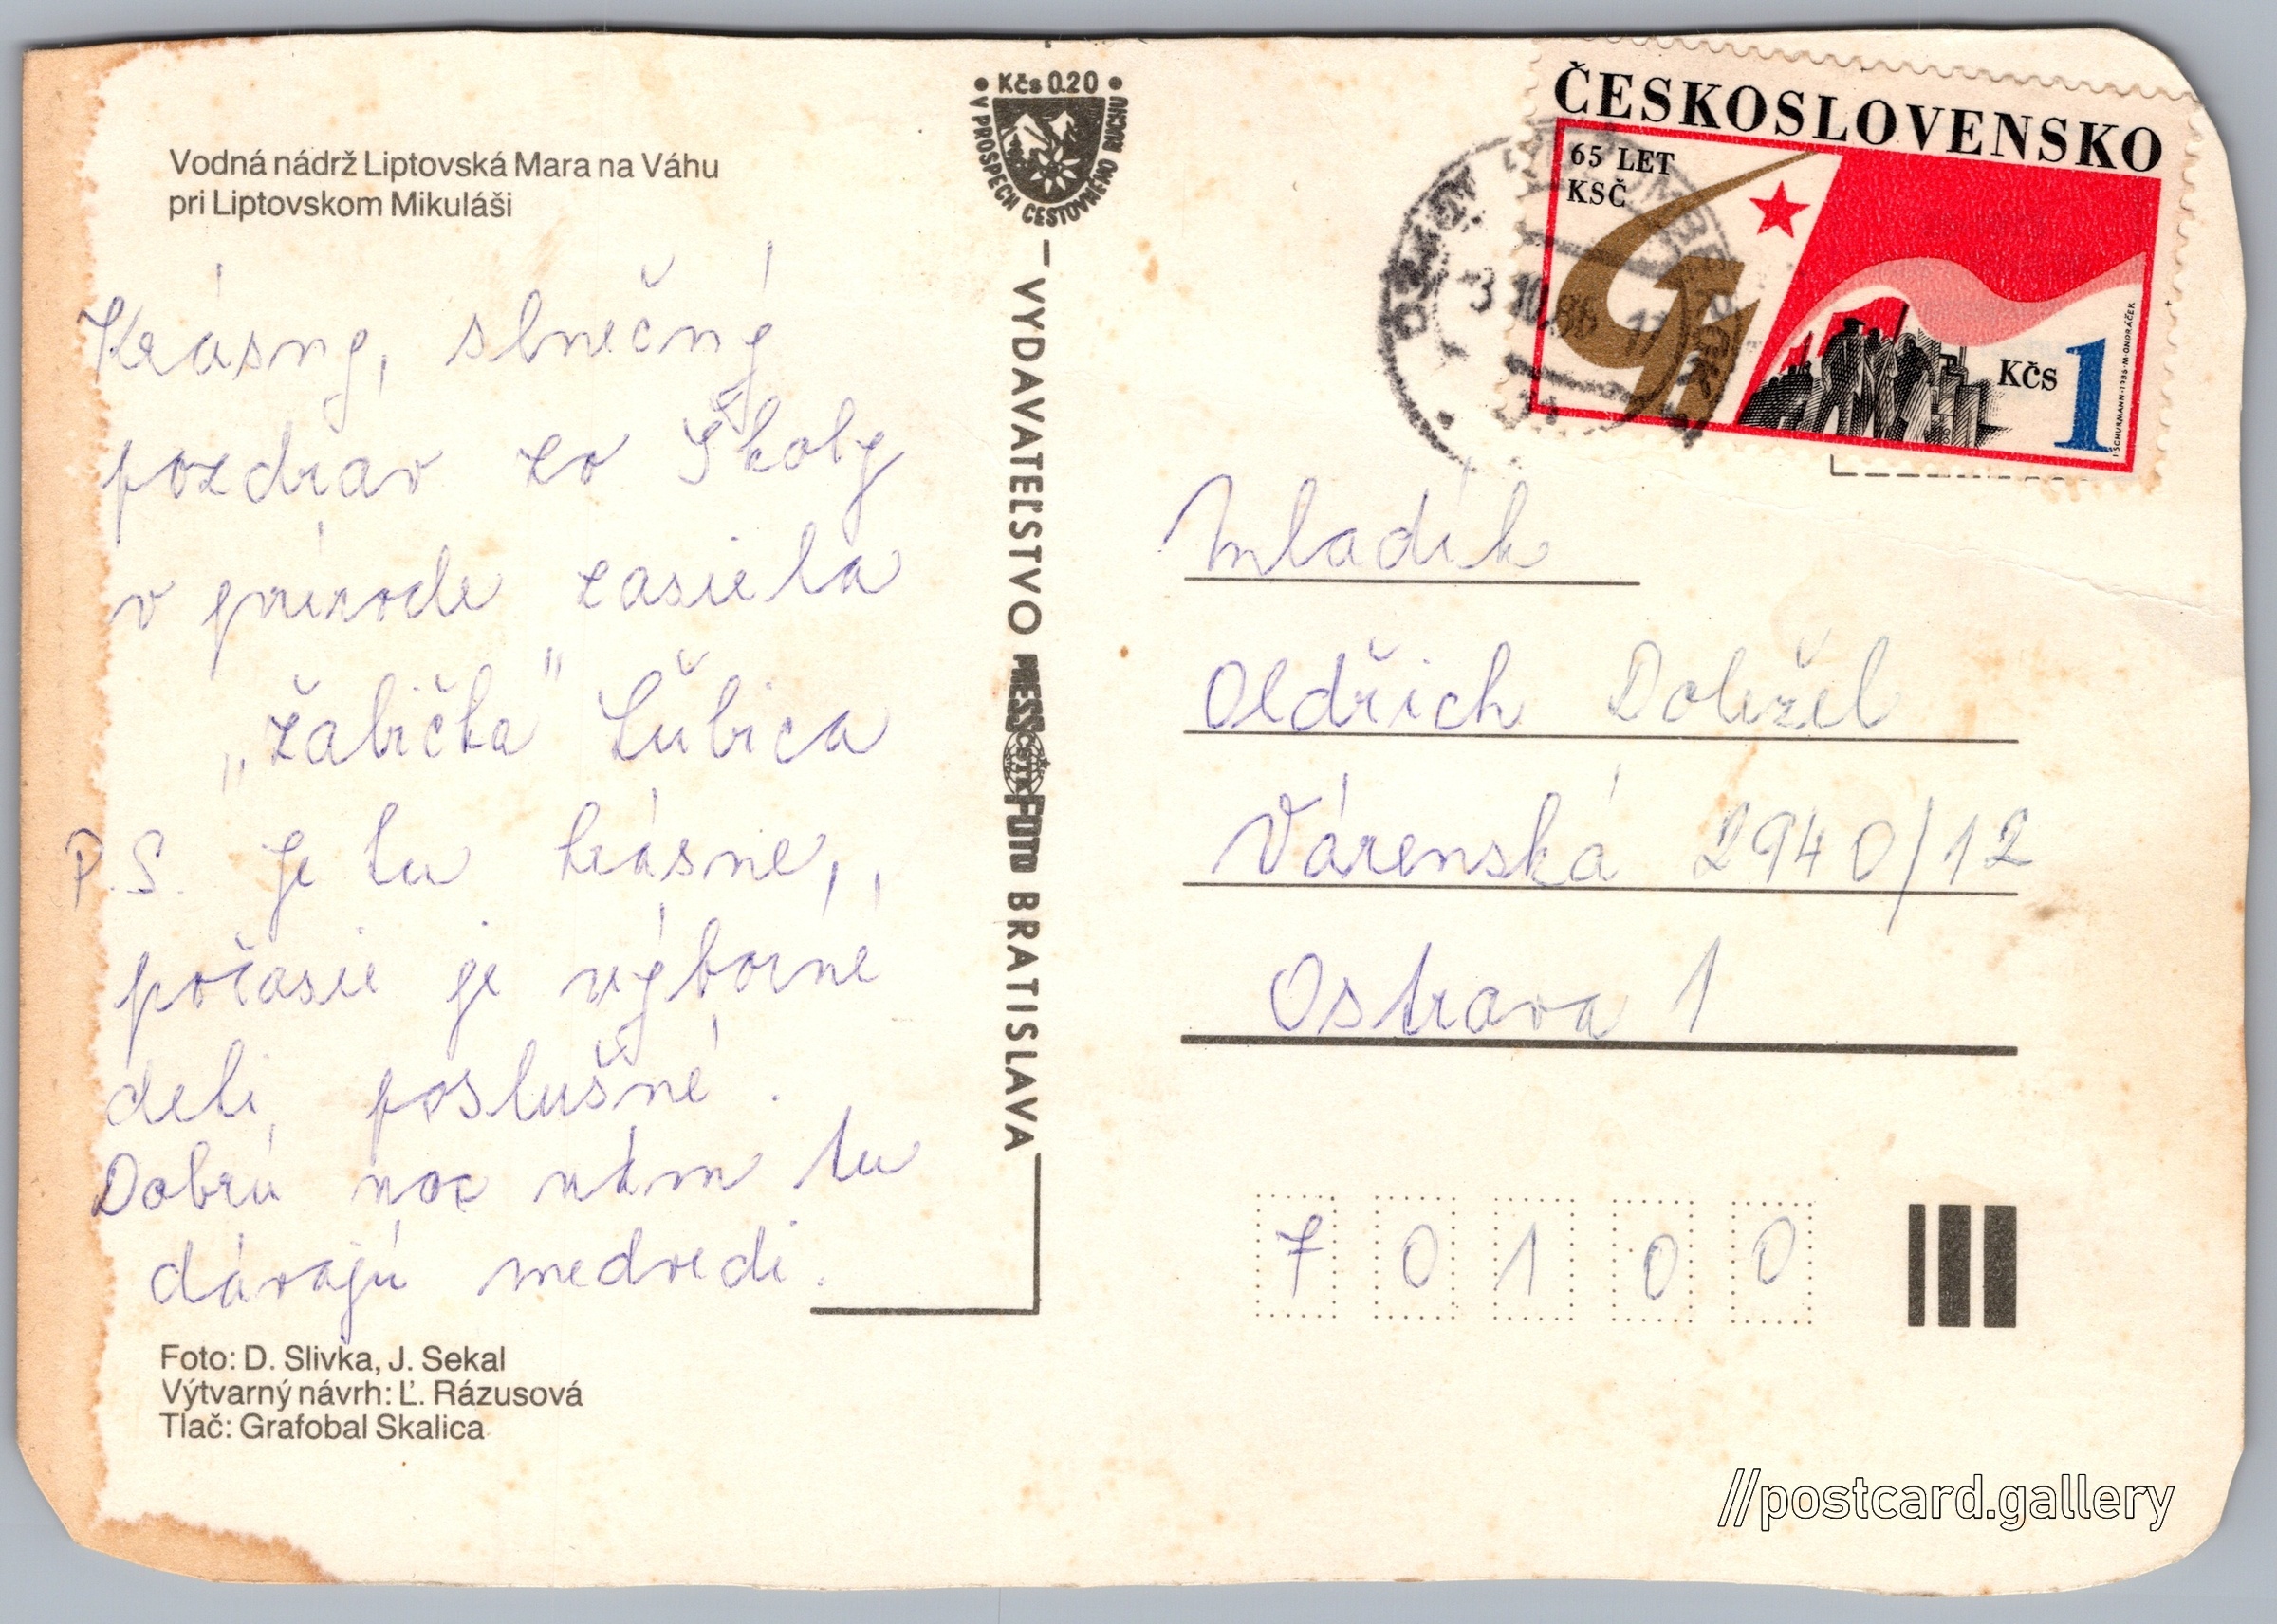 Vodná nádrž Liptovská Mara na Váhu
pri Liptovskom Mikuláši
Krásny, slnečný
pozdrav zo Školy
v prírode zasiela
„žabička" Ľubica
P.S. Je tu krásne,,
počasie je výborné
deti poslušné.
Dobrú noc nám tu
dávajú medvedi.
Foto: D. Slivka, J. Sekal
Výtvarný návrh: Ľ. Rázusová
Tlač: Grafobal Skalica
Kčs 0.20
V PROSPECH CESTOVNÉHO RUCHU
VYDAVATEĽSTVO PRESSFOTO BRATISLAVA
ČSTK
ČESKOSLOVENSKO
65 LET
KSČ
Kčs 1
I·SCHURMANN·1986·M·ONDRÁČEK
3 10.86
Mladík
Oldřich Doležel
Várenská 2940/12
Ostrava 1
7 0 1 0 0
//postcard.gallery